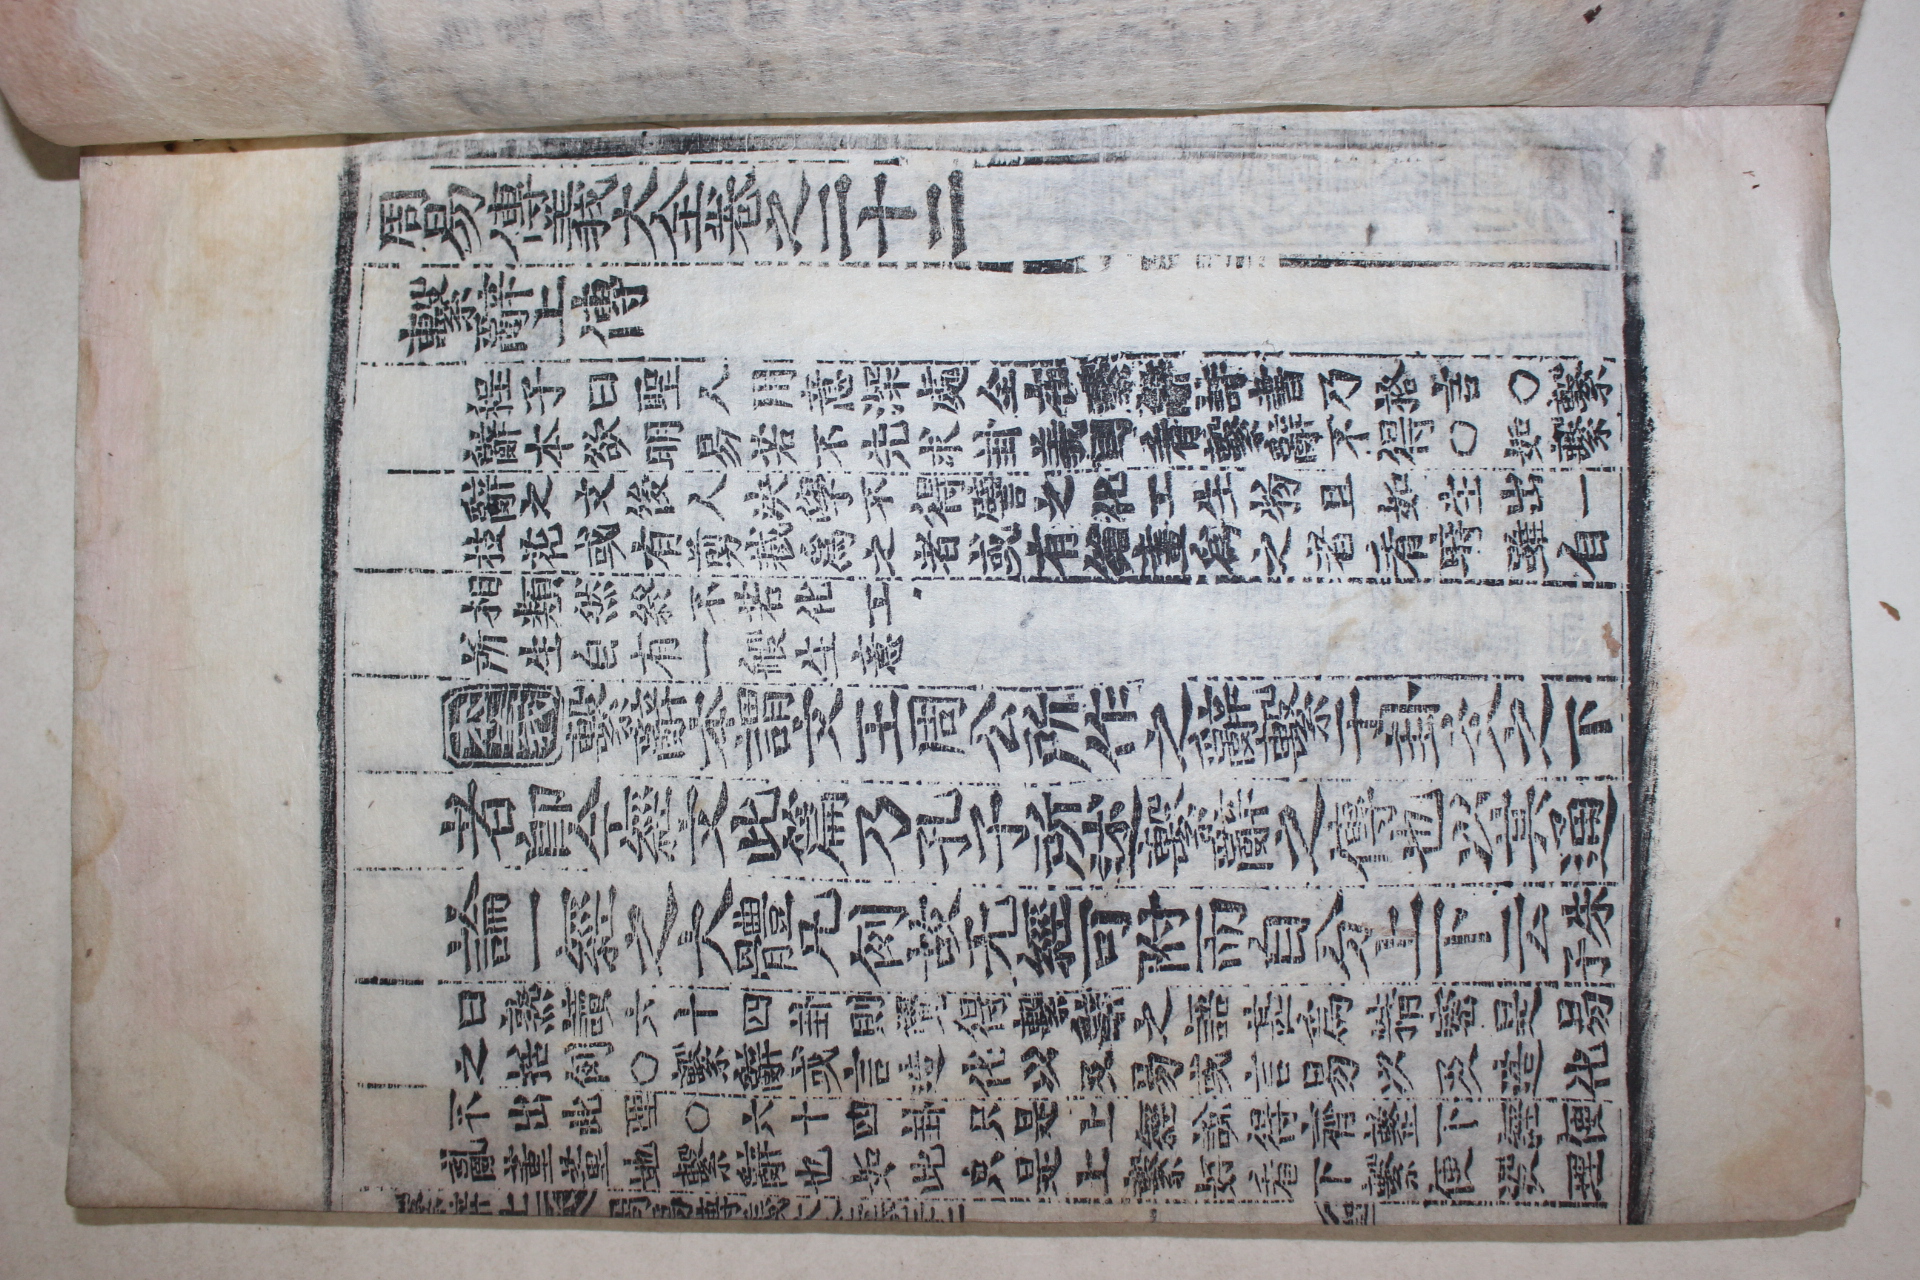 周易傳義大全卷之二十二
繫辭上傳
程子曰聖人用意深處全在繫辭詩書乃格言○繫
辭本欲明易若不先求卦義則看繫辭不得○如繫
辭之文後人決學不得譬之化工生物且如生出一
枝花或有剪裁爲之者或有繪畫爲之者看時雖自
相類然終不若化工
所生自有一般生意
本義繫辭本謂文王周公所作之辭繫于卦爻之下
者卽今經文此篇乃孔子所述繫辭之傳也以其通
論一經之大體凡例故无經可附而自分上下云
朱子
曰熟讀六十四卦則覺得繫辭之語甚爲精密是易
之括例○繫辭或言造化以及易或言易以及造化
不出此理○六十四卦只是上經說得齊整下經便
亂董董地繫辭也如此只是上繫好看下繫便沒理